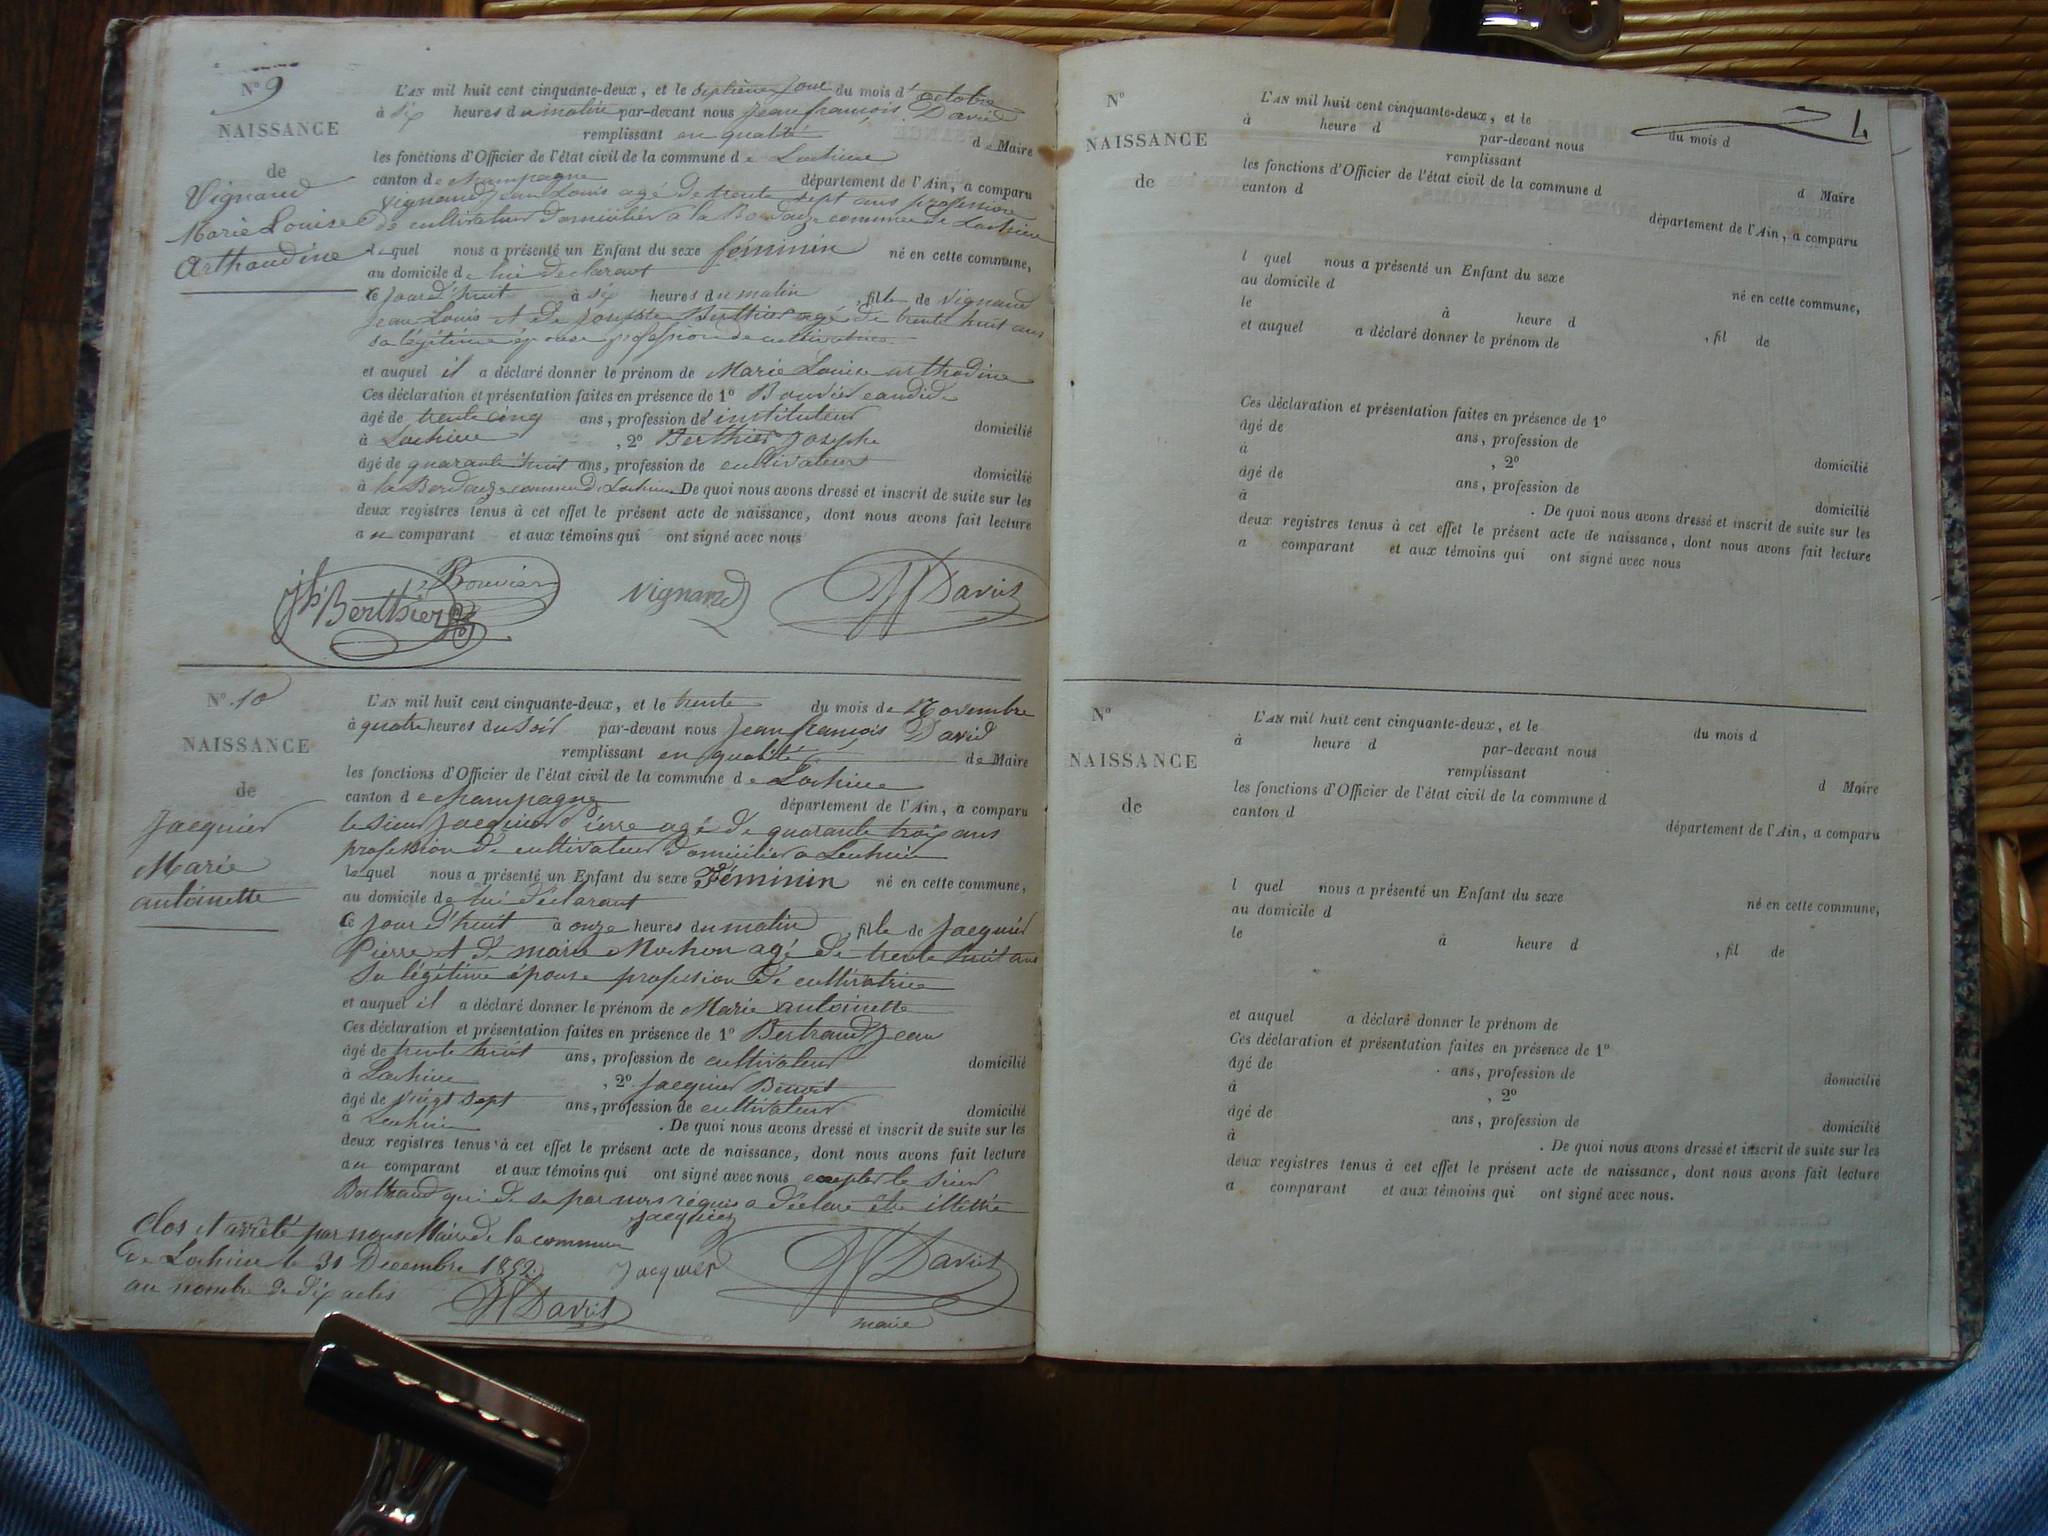 N° 9
NAISSANCE
de
Vignand
Marie Louise
Arthaudine
L'AN mil huit cent cinquante-deux, et le septième jour du mois d'octobre
à six heures du matin par-devant nous jean françois David
remplissant en qualité de Maire
les fonctions d'Officier de l'état civil de la commune de Lochieu
canton de champagne département de l'Ain, a comparu
vignand jean Louis agé de trente sept ans profession
de cultivateur domicilié a la commune de Lochieu
lequel nous a présenté un Enfant du sexe féminin né en cette commune,
au domicile de lui déclarant
ce jourd'huit à six heures du matin, fille de vignand
jean Louis et de Berthier agé de trente huit ans
sa légitime épouse profession de cultivatrice
et auquel il a déclaré donner le prénom de Marie Louise arthodine
Ces déclaration et présentation faites en présence de 1° Bouvier candide
âgé de trente cinq ans, profession d'instituteur domicilié
à Lochieu, 2° Berthier Josephe
âgé de quarante huit ans, profession de cultivateur domicilié
à la commune de Lochieu De quoi nous avons dressé et inscrit de suite sur les
deux registres tenus à cet effet le présent acte de naissance, dont nous avons fait lecture
au comparant et aux témoins qui ont signé avec nous
Bouvier
jh Berthier vignand David
N° 10
NAISSANCE
de
Jacquier
Marie
antoinette
L'AN mil huit cent cinquante-deux, et le trente du mois de Novembre
à quatre heures du soir par-devant nous jean françois David
remplissant en qualité de Maire
les fonctions d'Officier de l'état civil de la commune de Lochieu
canton de champagne département de l'Ain, a comparu
le sieur jacquier Pierre agé de quarante trois ans
profession de cultivateur domicilié a Lochieu
lequel nous a présenté un Enfant du sexe Féminin né en cette commune,
au domicile de lui déclarant
ce jourd'huit à onze heures du matin, fille de jacquier
Pierre et de marie Mochon agé de trente huit ans
sa légitime épouse profession de cultivatrice
et auquel il a déclaré donner le prénom de Marie antoinette
Ces déclaration et présentation faites en présence de 1° Bertrand jean
âgé de trente huit ans, profession de cultivateur domicilié
à Lochieu, 2° jacquier Benoit
âgé de vingt sept ans, profession de cultivateur domicilié
à Lochieu. De quoi nous avons dressé et inscrit de suite sur les
deux registres tenus à cet effet le présent acte de naissance, dont nous avons fait lecture
au comparant et aux témoins qui ont signé avec nous le sieur
Bertrand qui de se par nous réquis a déclaré être illettré
jacquier
clos et arrêté par nous Maire de la commune
de Lochieu le 31 Decembre 1852 jacquier David
au nombre de dix actes
David maire
4
N°
NAISSANCE
de
L'AN mil huit cent cinquante-deux, et le du mois d
à heure d par-devant nous
remplissant d Maire
les fonctions d'Officier de l'état civil de la commune d
canton d département de l'Ain, a comparu
l quel nous a présenté un Enfant du sexe né en cette commune,
au domicile d
le à heure d, fil de
et auquel a déclaré donner le prénom de
Ces déclaration et présentation faites en présence de 1°
âgé de ans, profession de domicilié
à, 2°
âgé de ans, profession de domicilié
à. De quoi nous avons dressé et inscrit de suite sur les
deux registres tenus à cet effet le présent acte de naissance, dont nous avons fait lecture
a comparant et aux témoins qui ont signé avec nous
N°
NAISSANCE
de
L'AN mil huit cent cinquante-deux, et le du mois d
à heure d par-devant nous
remplissant d Maire
les fonctions d'Officier de l'état civil de la commune d
canton d département de l'Ain, a comparu
l quel nous a présenté un Enfant du sexe né en cette commune,
au domicile d
le à heure d, fil de
et auquel a déclaré donner le prénom de
Ces déclaration et présentation faites en présence de 1°
âgé de ans, profession de domicilié
à, 2°
âgé de ans, profession de domicilié
à. De quoi nous avons dressé et inscrit de suite sur les
deux registres tenus à cet effet le présent acte de naissance, dont nous avons fait lecture
a comparant et aux témoins qui ont signé avec nous.